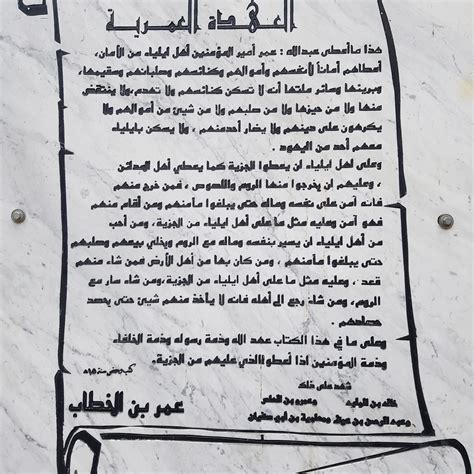 العهدة العمرية
هذا ما أعطى عبدالله : عمر أمير المؤمنين أهل ايلياء من الأمان،
أعطاهم أماناً لأنفسهم وأموالهم وكنائسهم وصلبانهم وسقيمها،
وبريئها وسائر ملتها أنه لا تسكن كنائسهم ولا تهدم،ولا ينتقض
منها ولا من حيزها ولا من صلبهم ولا من شيئ من أموالهم ولا
يكرهون على دينهم ولا يضار أحدمنهم ، ولا يسكن بايلياء
معهم أحد من اليهود .
وعلى أهل ايلياء ان يعطوا الجزية كما يعطي أهل المدائن
، وعليهم ان يخرجوا منها الروم واللصوص ، فمن خرج منهم
فانه آمن على نفسه وماله حتى يبلغوا مأمنهم ومن أقام منهم
فهو آمن وعليه مثل ما على أهل ايلياء من الجزية، ومن أحب
من أهل ايلياء ان يسير بنفسه وماله مع الروم ويخلي بيعهم وصلبهم
حتى يبلغوا مأمنهم ، ومن كان بها من أهل الأرض فمن شاء منهم
قعد ، وعليه مثل ما على أهل ايلياء من الجزية،ومن شاء سار مع
الروم، ومن شاء رجع الى أهله فانه لا يأخذ منهم شيئ حتى يحصد
حصادهم .
وعلى ما في هذا الكتاب عهد الله وذمة رسوله وذمة الخلفاء
وذمة المؤمنين اذا أعطوا الذي عليهم من الجزية.
شهد على ذلك
خالد بن الوليد وعمرو بن العاص
وعبد الرحمن بن عوف ومعاوية بن أبي سفيان
عمر بن الخطاب